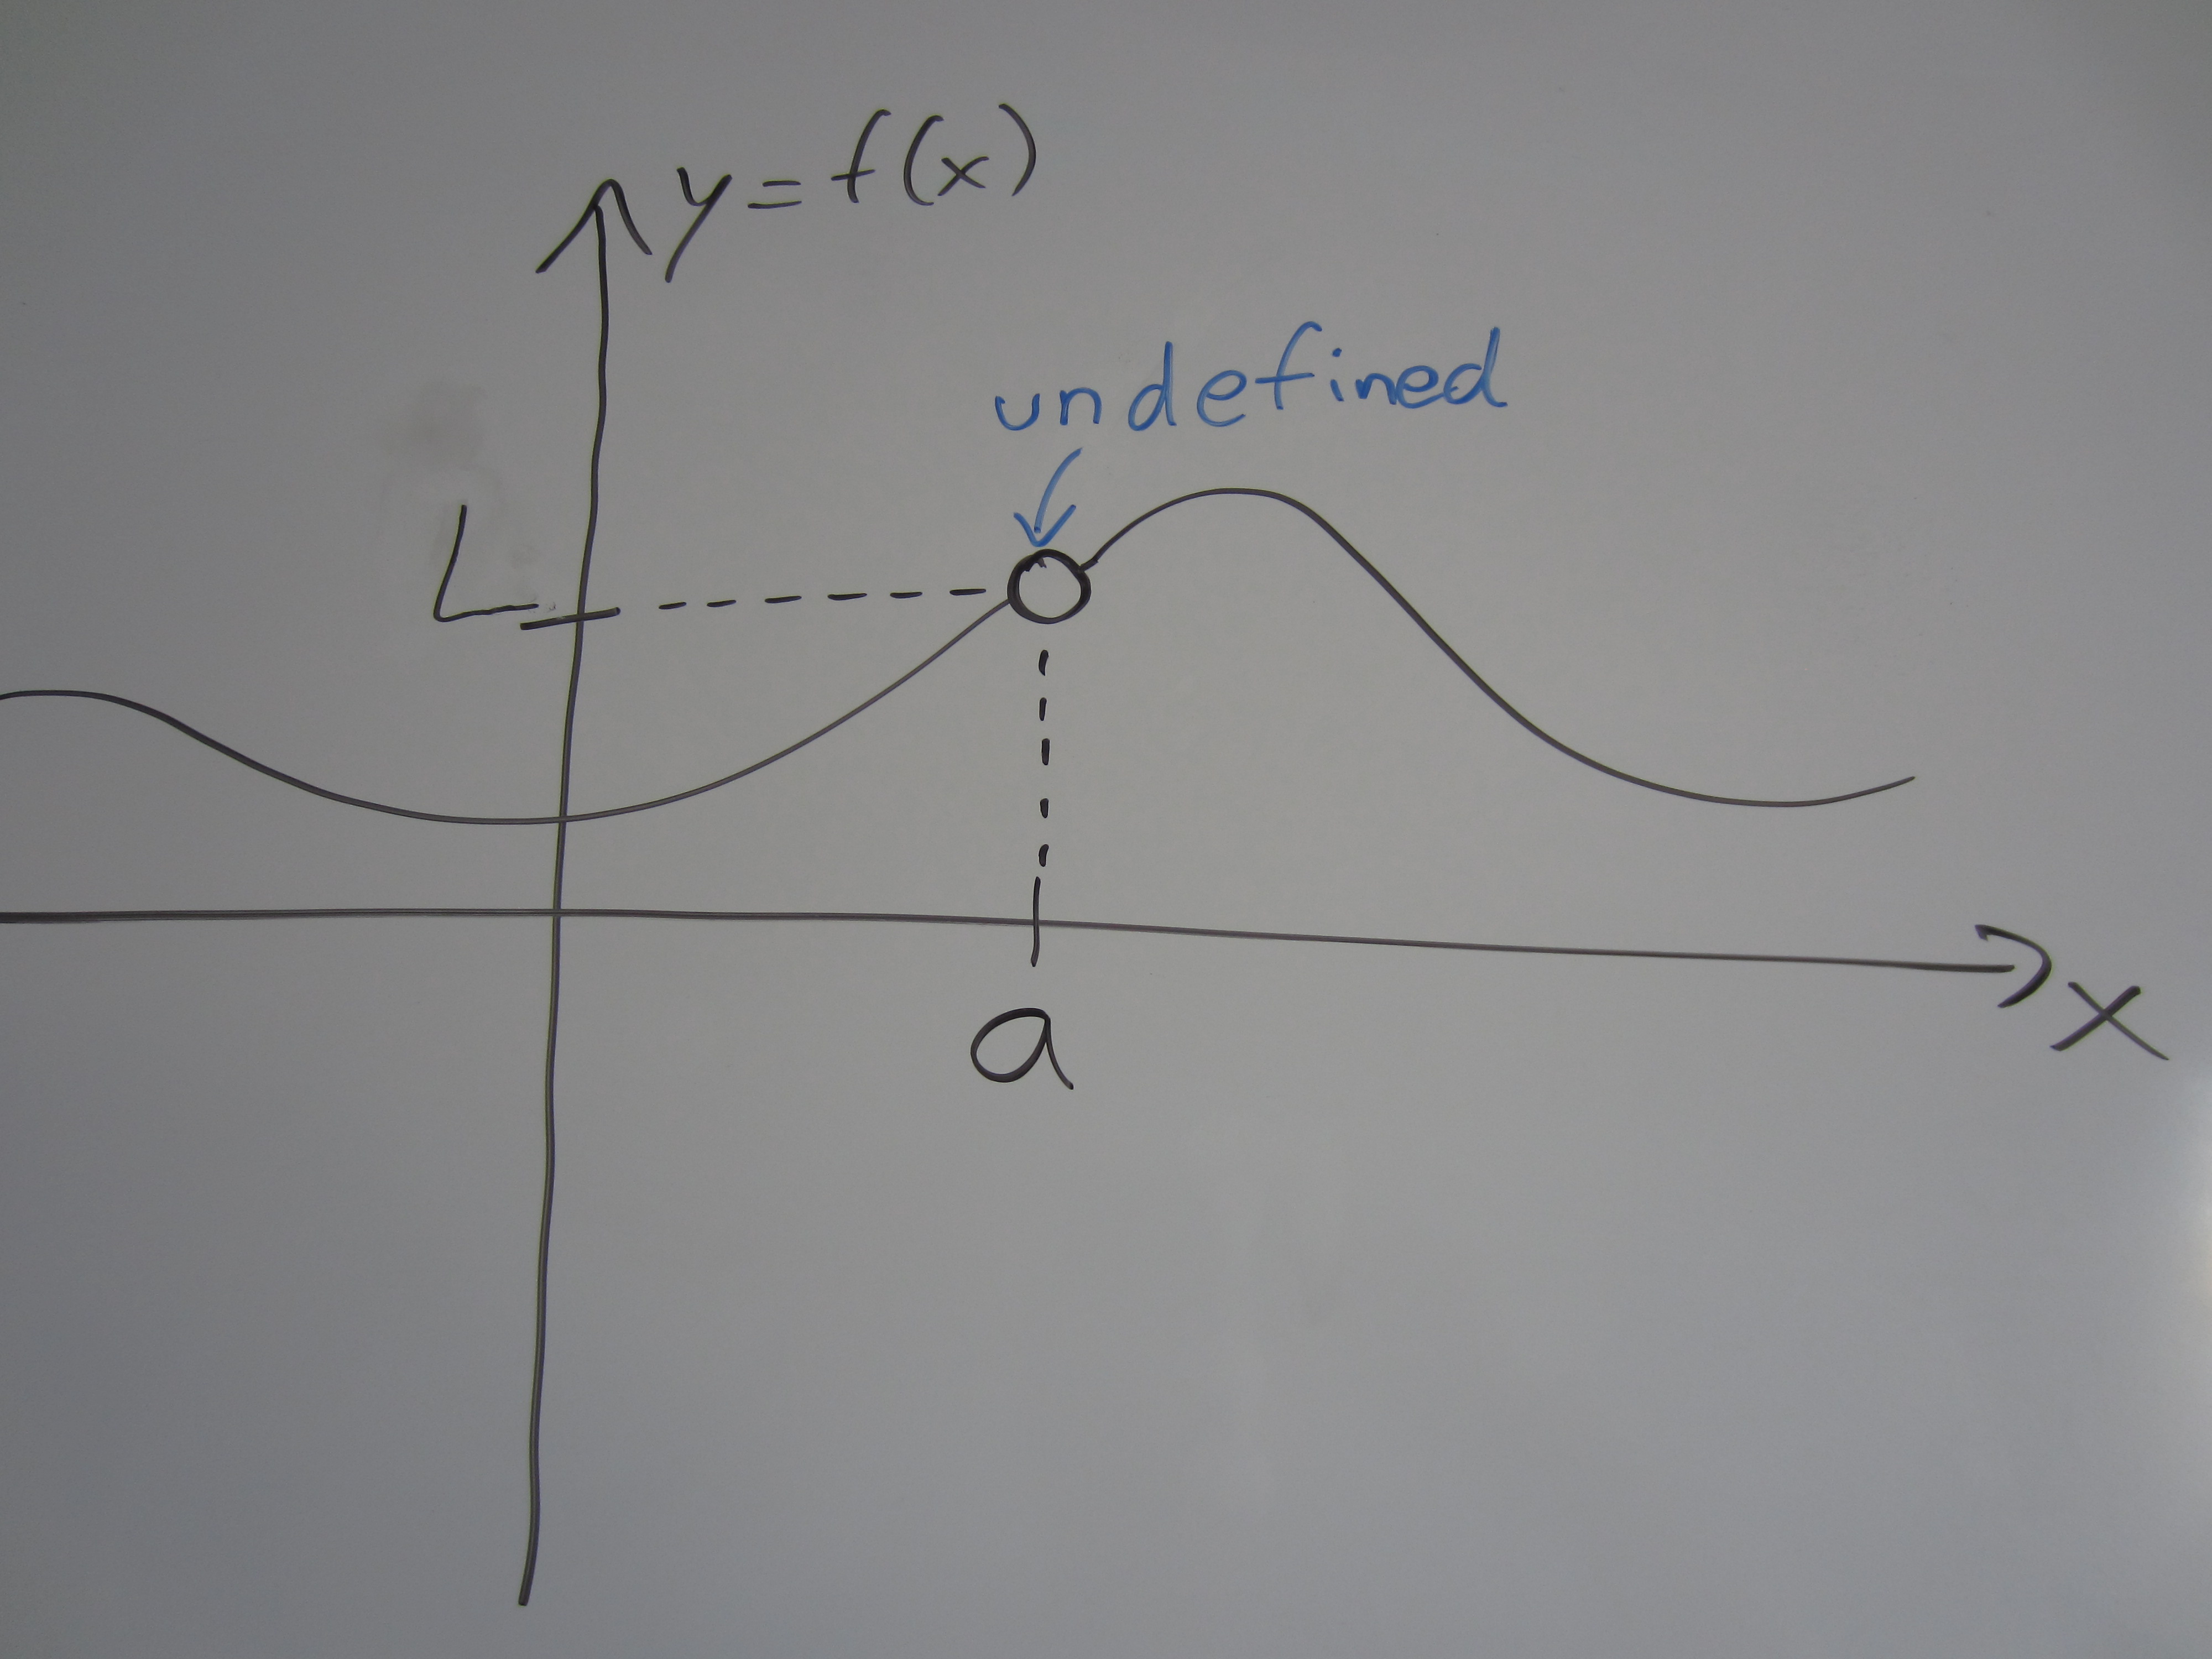 y=f(x)
undefined
L
a
x